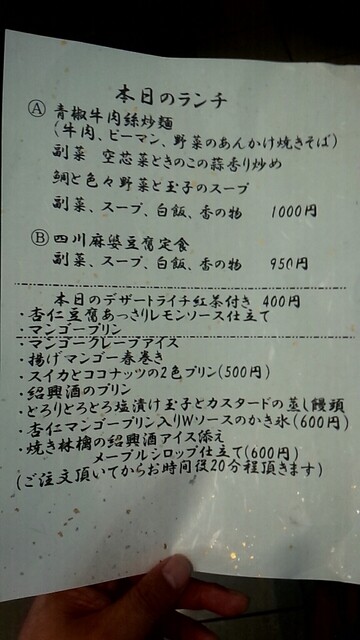 本日のランチ
Ⓐ 青椒牛肉絲炒麺
(牛肉、ピーマン、野菜のあんかけ焼きそば)
副菜 空芯菜ときのこの蒜香り炒め
鯛と色々野菜と玉子のスープ
副菜、スープ、白飯、香の物 1000円
Ⓑ 四川麻婆豆腐定食
副菜、スープ、白飯、香の物 950円
本日のデザートライチ紅茶付き 400円
・杏仁豆腐あっさりレモンソース仕立て
・マンゴープリン
・マンゴークレープアイス
・揚げマンゴー春巻き
・スイカとココナッツの2色プリン(500円)
・紹興酒のプリン
・とろりとろとろ塩漬け玉子とカスタードの蒸し饅頭
・杏仁マンゴープリン入りWソースのかき氷(600円)
・焼き林檎の紹興酒アイス添え
メープルシロップ仕立て(600円)
(ご注文頂いてからお時間役20分程頂きます)